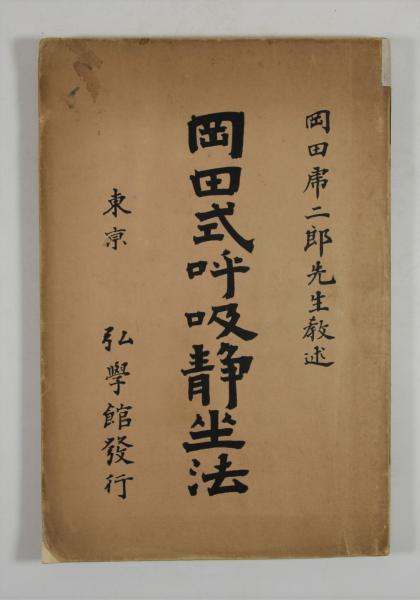 岡田虎二郎先生教述
岡田式呼吸静坐法
東亰 弘學館發行